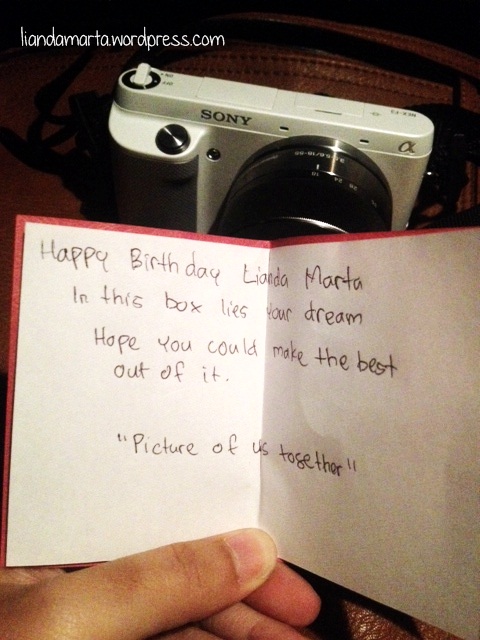 liandamarta.wordpress.com
OFF
SONY
NEX-F3
α
3.5-5.6/18-55
18 24 28
Happy Birthday Lianda Marta
In this box lies your dream
Hope you could make the best
out of it.
"Picture of us together"